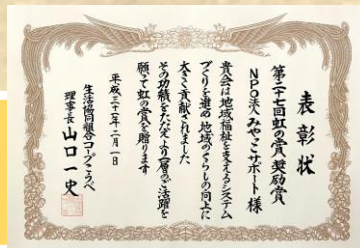 表彰状
第二十七回虹の賞 奨励賞
NPO法人みやっこサポート 様
貴会は地域福祉を支えるシステム
づくりを進め 地域のくらしの向上に
大きく貢献されました
その功績をたたえ より一層のご活躍を
願って虹の賞を贈ります
平成三十一年二月一日
生活協同組合コープこうべ
理事長 山口一史